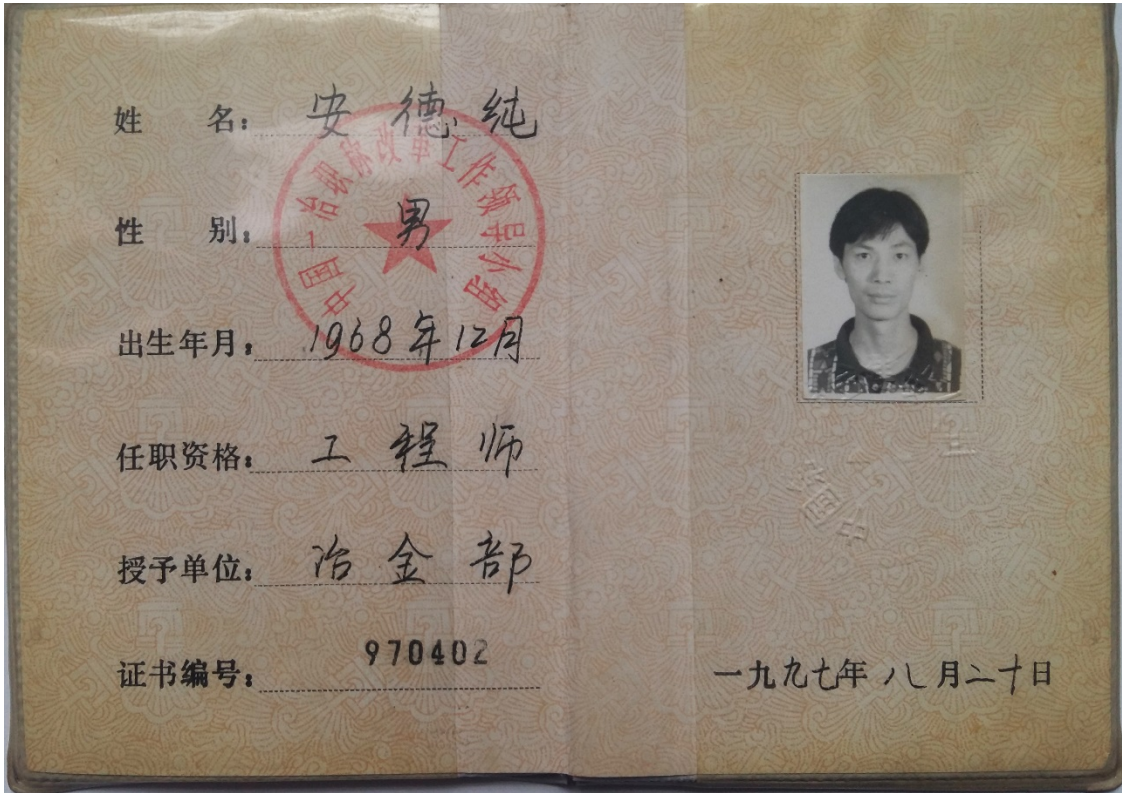 姓 名：安德纯
性 别：男
出生年月：1968年12月
任职资格：工程师
授予单位：冶金部
证书编号：970402
中国一冶职称改革工作领导小组
一九九七年八月二十日